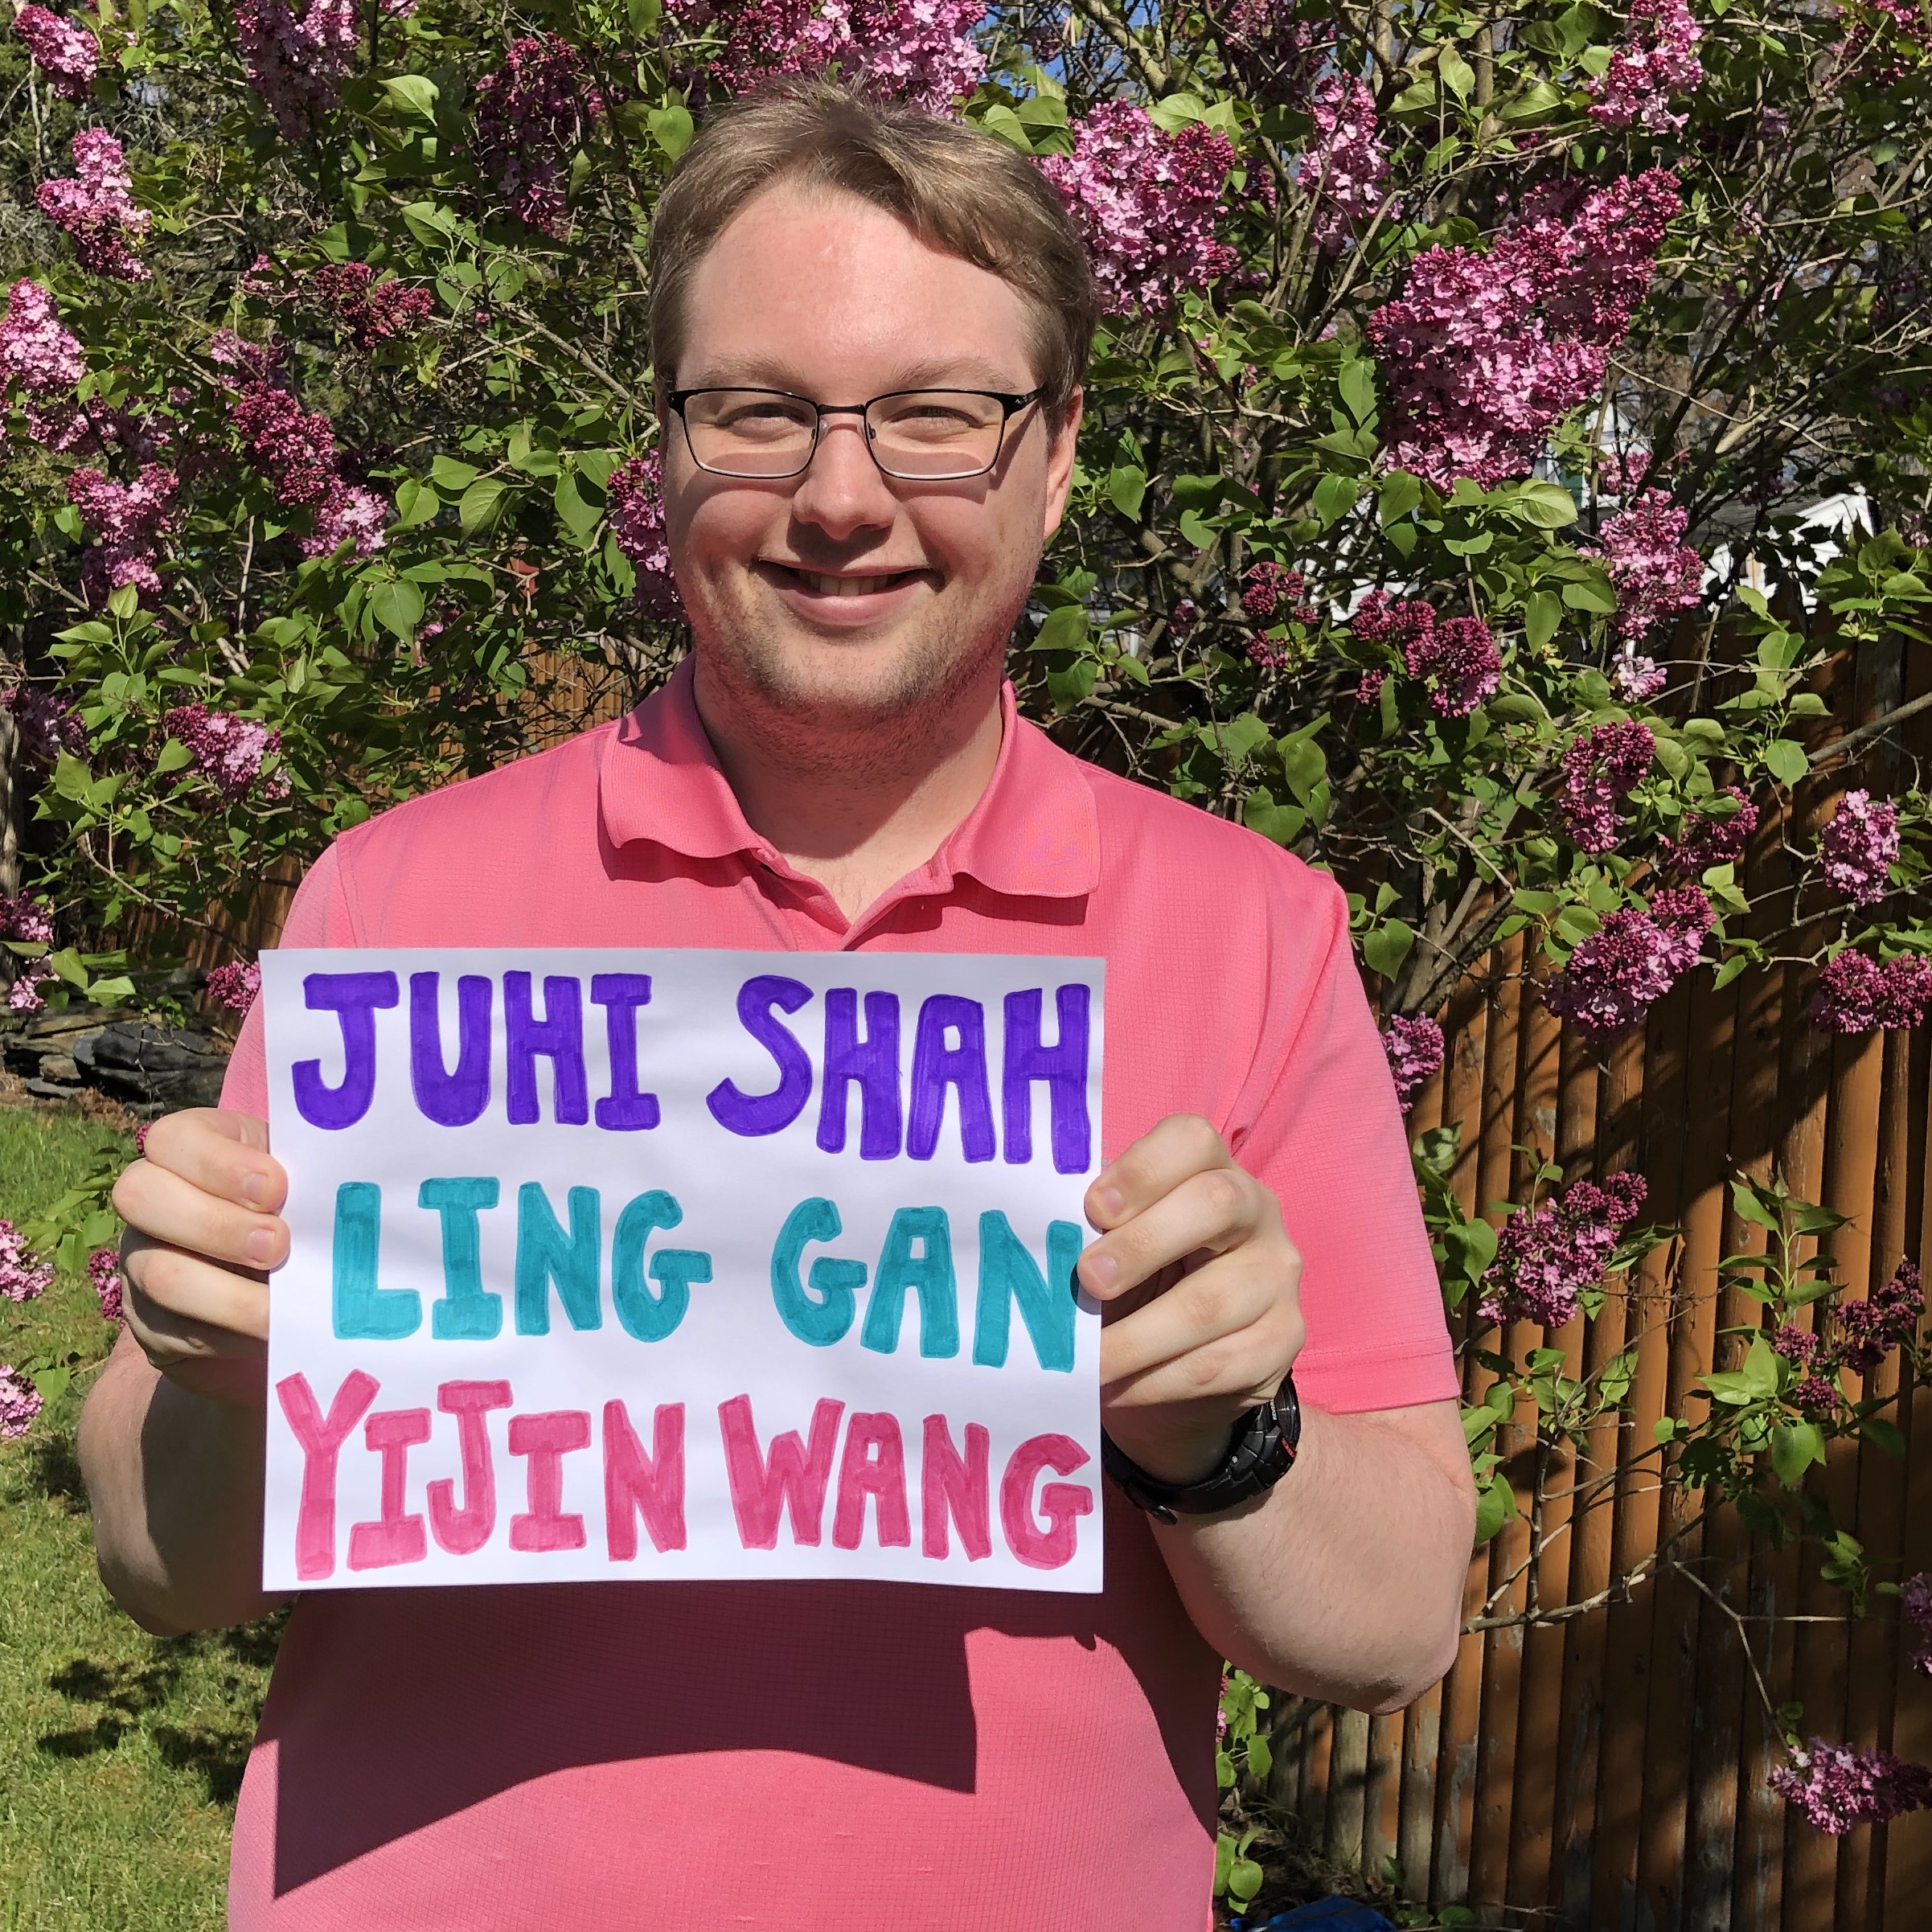 JUHI SHAH
LING GAN
YIJIN WANG